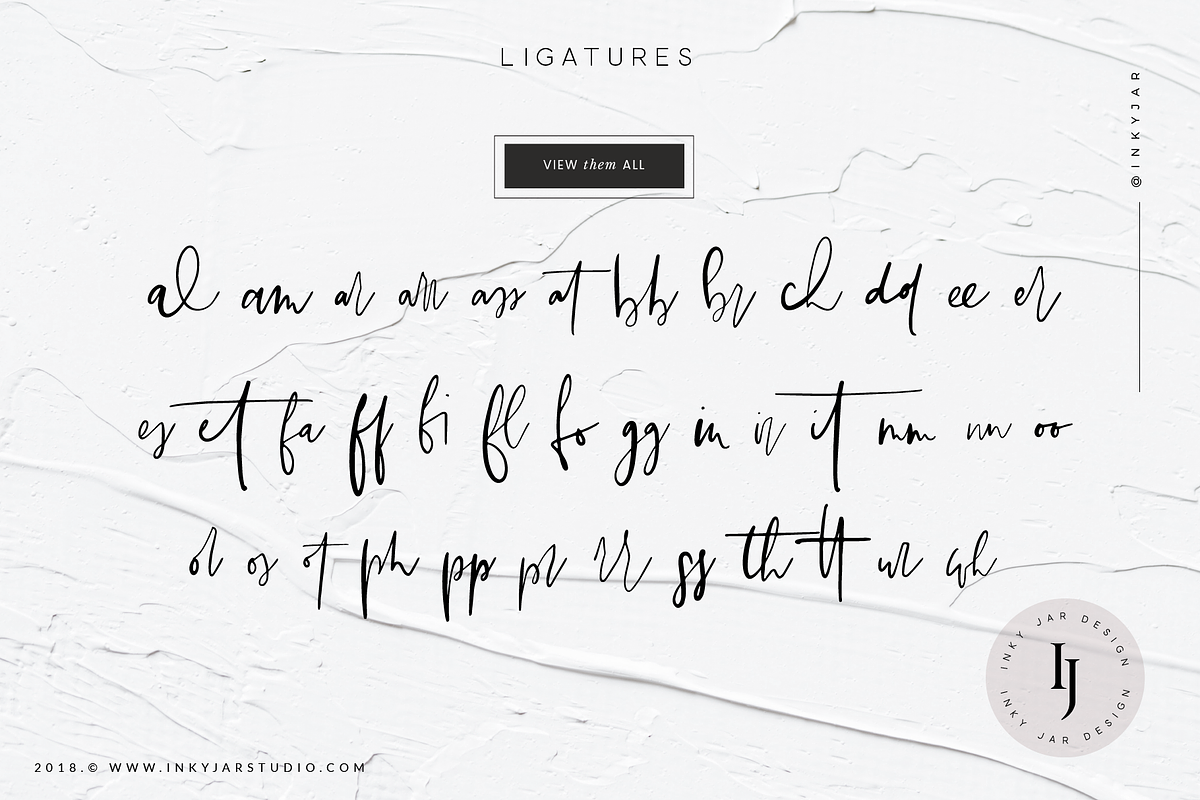 LIGATURES
@INKYJAR
VIEW them ALL
al am ar arr ass at bb br ch dd ee er
es et fa ff fi fl fo gg in ir it mm nn oo
or os ot ph pp pr rr ss th tt ur wh
INKY JAR DESIGN
IJ
INKY JAR DESIGN
2018.© WWW.INKYJARSTUDIO.COM